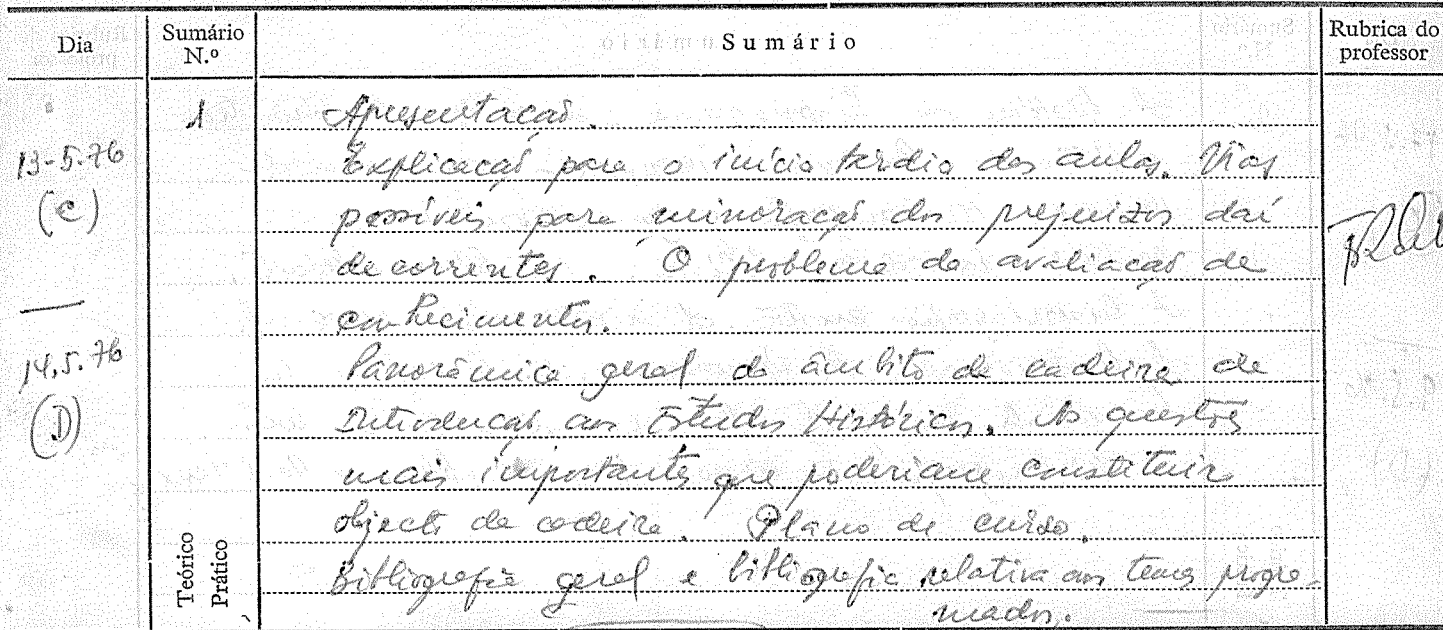 Dia
Sumário N.º
Sumário
Rubrica do professor
1
Apresentação.
13-5-76
Explicação para o início tardio das aulas. Vias
(C)
possíveis para minoração dos prejuízos daí
decorrentes. O problema da avaliação de
conhecimentos.
14.5.76
Panorâmica geral do âmbito da cadeira de
(D)
Introdução aos Estudos Históricos. As questões
mais importantes que poderiam constituir
objecto da cadeira. Plano de curso.
Bibliografia geral e bibliografia relativa aos temas progra-
mados.
Teórico
Prático